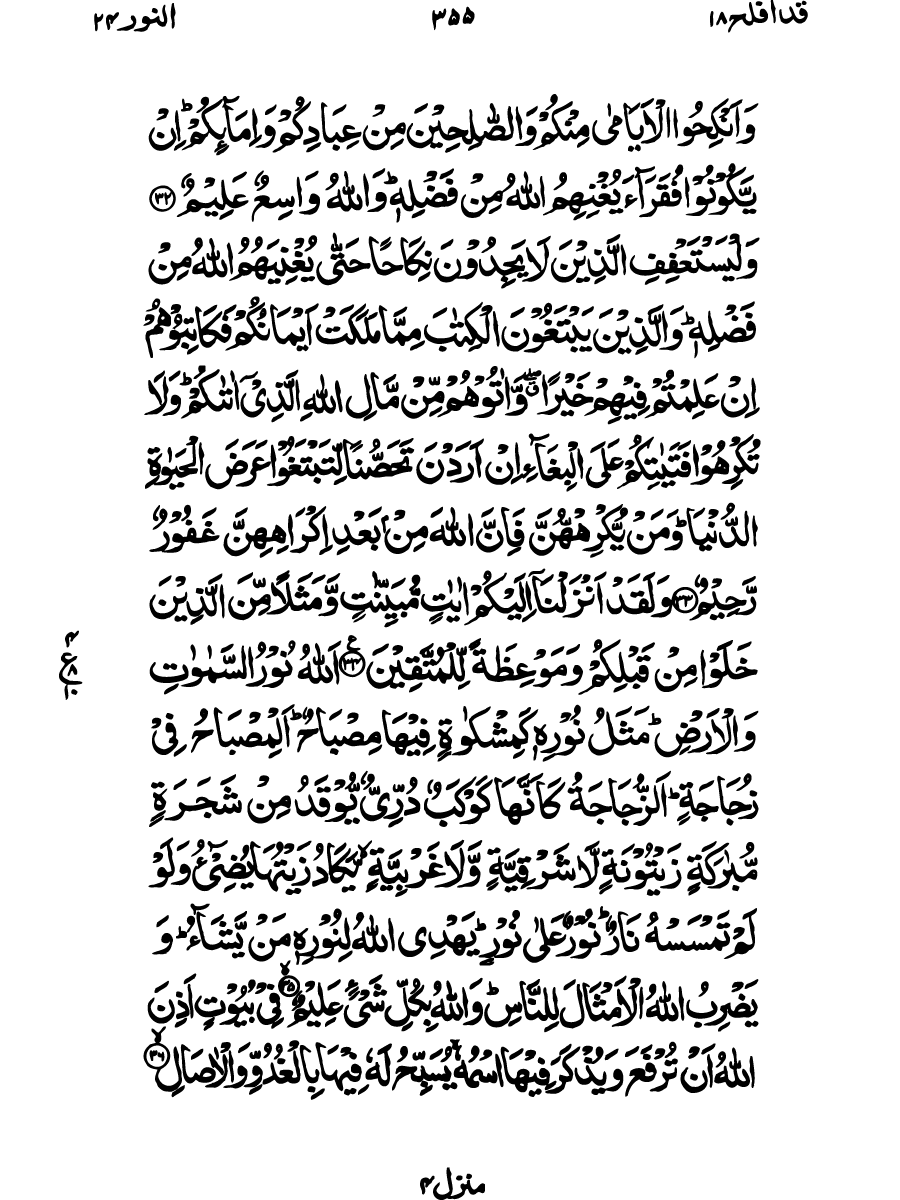 قد افلح ۱۸ ۳۵۵ النور ۲۴
وَاَنْكِحُوا الْاَيَامٰى مِنْكُمْ وَالصّٰلِحِيْنَ مِنْ عِبَادِكُمْ وَاِمَآئِكُمْ ؕ اِنْ
يَّكُوْنُوْا فُقَرَآءَ يُغْنِهِمُ اللّٰهُ مِنْ فَضْلِهٖ ؕ وَاللّٰهُ وَاسِعٌ عَلِيْمٌ ﴿۳۲﴾
وَلْيَسْتَعْفِفِ الَّذِيْنَ لَا يَجِدُوْنَ نِكَاحًا حَتّٰى يُغْنِيَهُمُ اللّٰهُ مِنْ
فَضْلِهٖ ؕ وَالَّذِيْنَ يَبْتَغُوْنَ الْكِتٰبَ مِمَّا مَلَكَتْ اَيْمَانُكُمْ فَكَاتِبُوْهُمْ
اِنْ عَلِمْتُمْ فِيْهِمْ خَيْرًا ۖ وَّاٰتُوْهُمْ مِّنْ مَّالِ اللّٰهِ الَّذِيْٓ اٰتٰىكُمْ ؕ وَلَا
تُكْرِهُوْا فَتَيٰتِكُمْ عَلَى الْبِغَآءِ اِنْ اَرَدْنَ تَحَصُّنًا لِّتَبْتَغُوْا عَرَضَ الْحَيٰوةِ
الدُّنْيَا ؕ وَمَنْ يُّكْرِهْهُّنَّ فَاِنَّ اللّٰهَ مِنْۢ بَعْدِ اِكْرَاهِهِنَّ غَفُوْرٌ
رَّحِيْمٌ ﴿۳۳﴾ وَلَقَدْ اَنْزَلْنَآ اِلَيْكُمْ اٰيٰتٍ مُّبَيِّنٰتٍ وَّمَثَلًا مِّنَ الَّذِيْنَ
خَلَوْا مِنْ قَبْلِكُمْ وَمَوْعِظَةً لِّلْمُتَّقِيْنَ ﴿۳۴﴾ ع اَللّٰهُ نُوْرُ السَّمٰوٰتِ ۴ ع ۸ ۱۰
وَالْاَرْضِ ؕ مَثَلُ نُوْرِهٖ كَمِشْكٰوةٍ فِيْهَا مِصْبَاحٌ ؕ اَلْمِصْبَاحُ فِيْ
زُجَاجَةٍ ؕ اَلزُّجَاجَةُ كَاَنَّهَا كَوْكَبٌ دُرِّيٌّ يُّوْقَدُ مِنْ شَجَرَةٍ
مُّبٰرَكَةٍ زَيْتُوْنَةٍ لَّا شَرْقِيَّةٍ وَّلَا غَرْبِيَّةٍ ۙ يَّكَادُ زَيْتُهَا يُضِيْٓءُ وَلَوْ
لَمْ تَمْسَسْهُ نَارٌ ؕ نُوْرٌ عَلٰى نُوْرٍ ؕ يَهْدِى اللّٰهُ لِنُوْرِهٖ مَنْ يَّشَآءُ ؕ وَ
يَضْرِبُ اللّٰهُ الْاَمْثَالَ لِلنَّاسِ ؕ وَاللّٰهُ بِكُلِّ شَيْءٍ عَلِيْمٌ ﴿۳۵﴾ۙ فِيْ بُيُوْتٍ اَذِنَ
اللّٰهُ اَنْ تُرْفَعَ وَيُذْكَرَ فِيْهَا اسْمُهٗ ۙ يُسَبِّحُ لَهٗ فِيْهَا بِالْغُدُوِّ وَالْاٰصَالِ ﴿۳۶﴾ۙ
منزل ۴